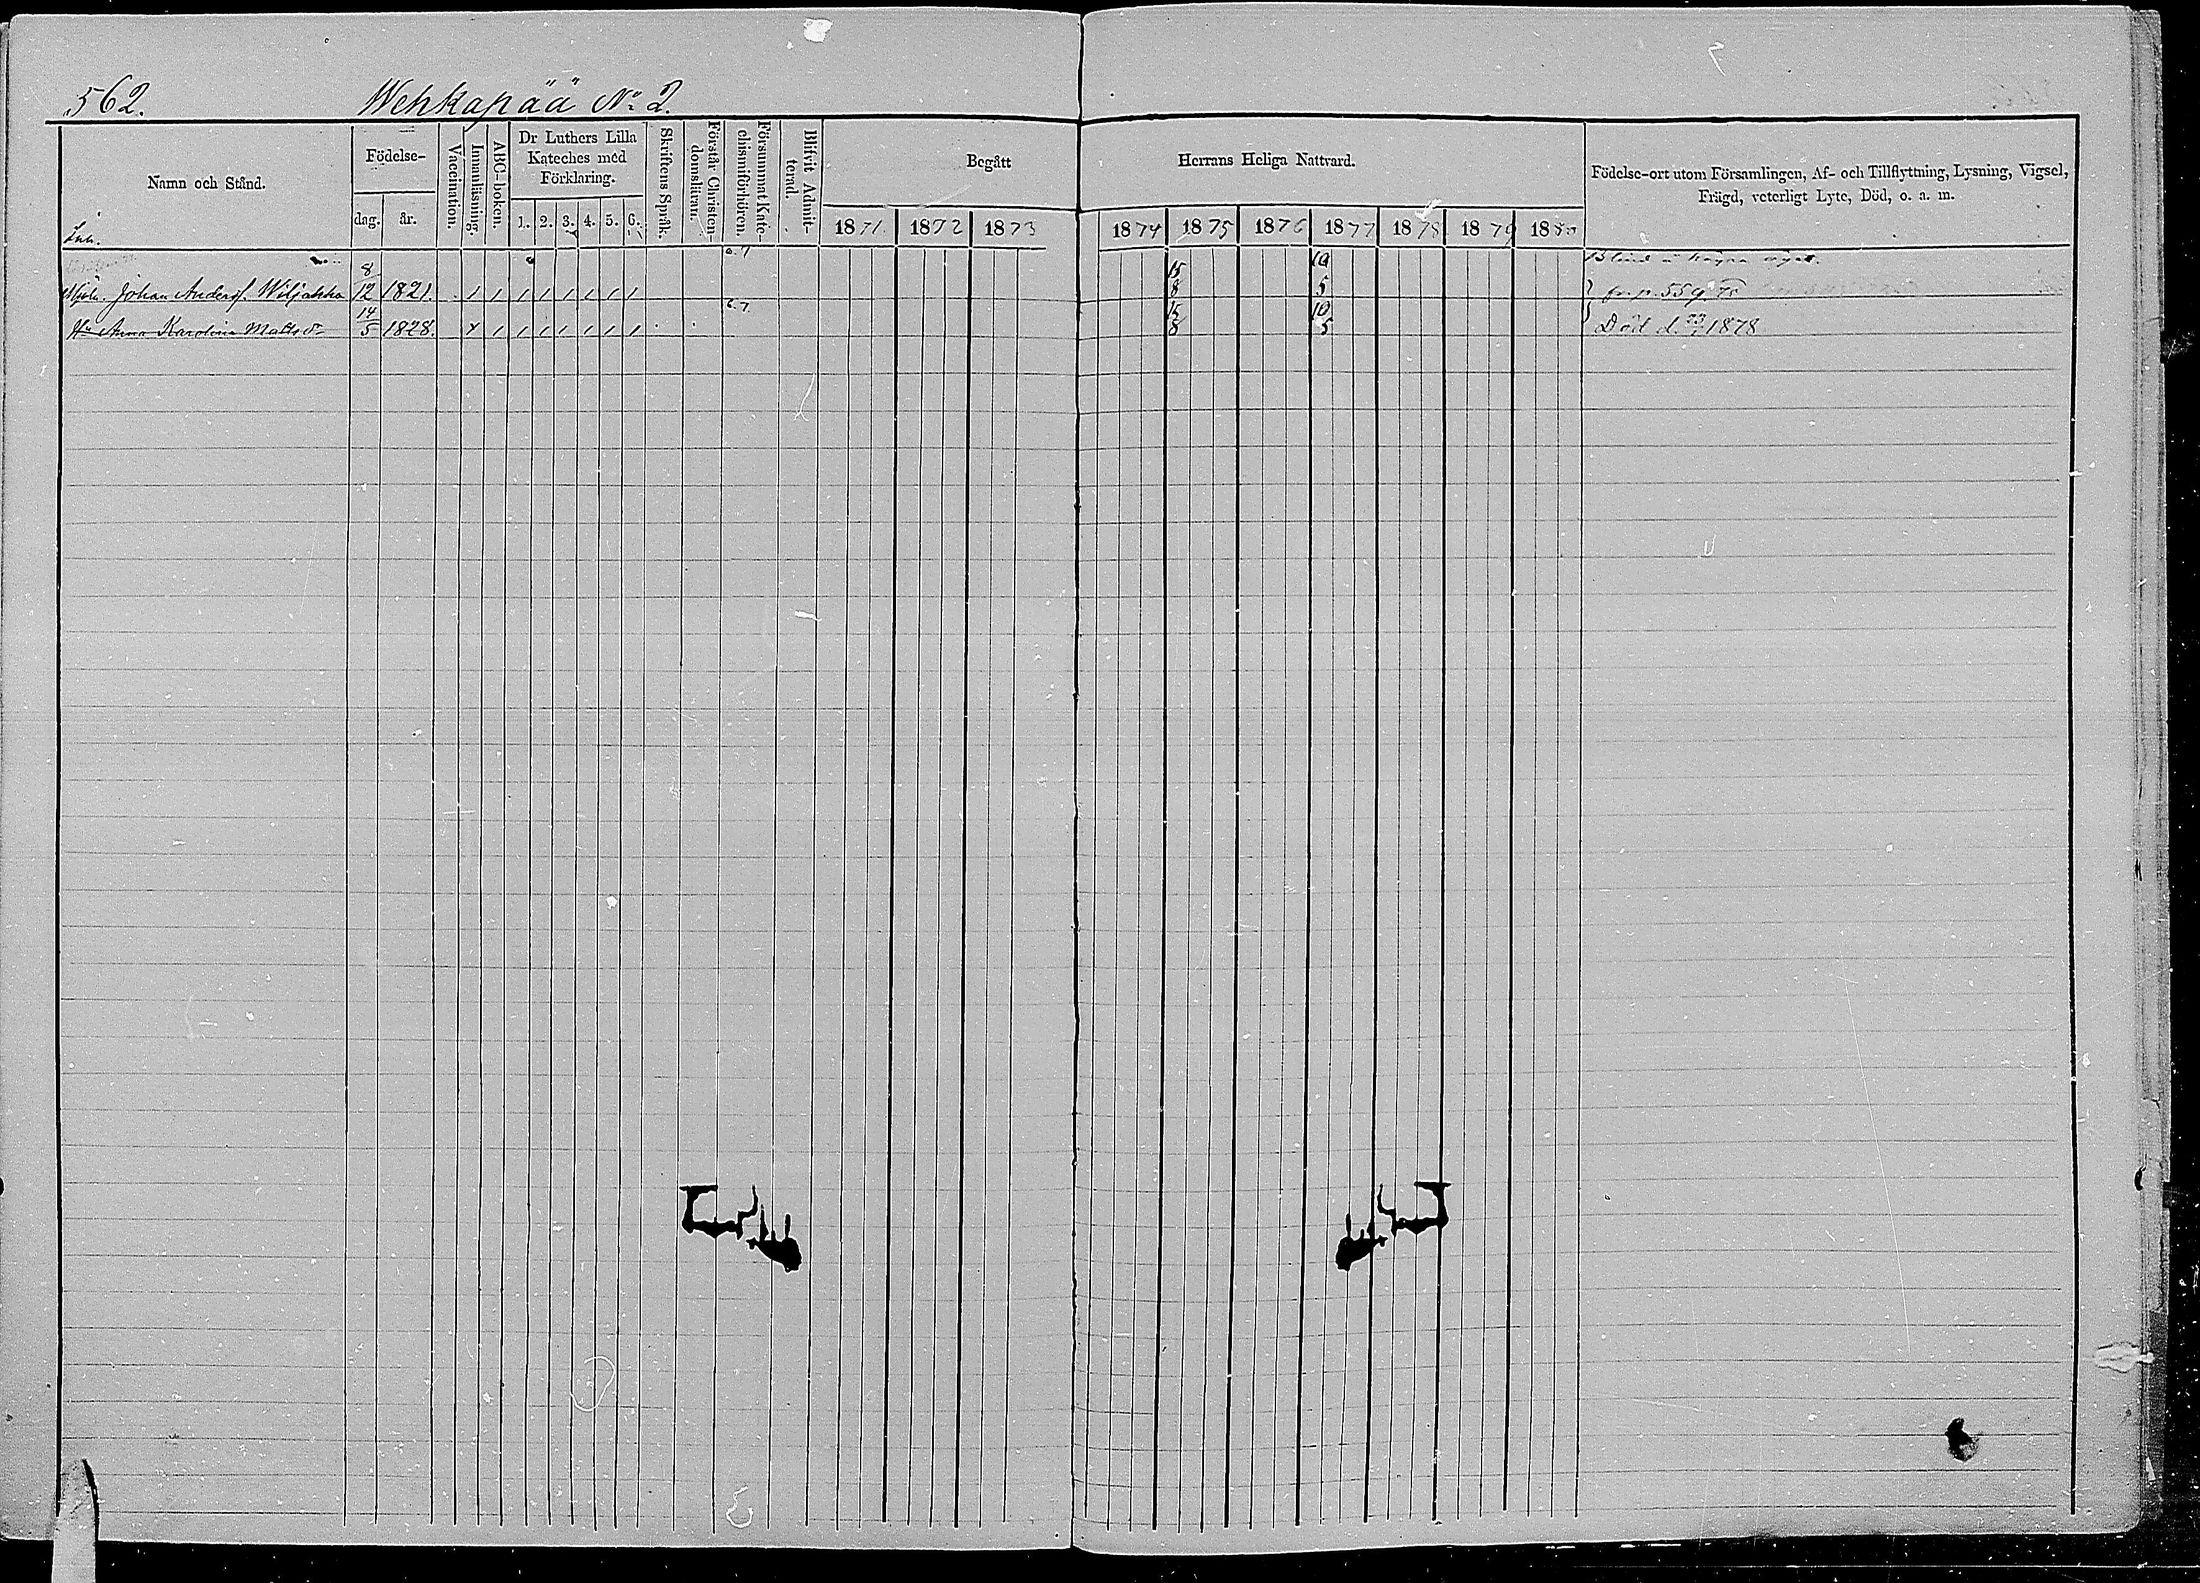 562. Wehkapää No 2.
Namn och Stånd.
Födelse-
dag. år.
Vaccination.
Innanläsning.
ABC-boken.
Dr Luthers Lilla Kateches med Förklaring.
1. 2. 3. 4. 5. 6.
Skriftens Språk.
Förstår Christendomsläran.
Försummat Katechismiförhören.
Blifvit Admitterad.
Begått Herrans Heliga Nattvard.
1871. 1872 1873 1874 1875 1876 1877 1878 1879 1880
Födelse-ort utom Församlingen, Af- och Tillflyttning, Lysning, Vigsel,
Frägd, veterligt Lyte, Död, o. a. m.
Inh.
6.7 Blind å högra ögat.
Johan Andersf. Wiljakka 8/12 1821. 1 1 1 1 1 1 1 1 15/8 10/5 fr. p. 559
Hu Anna Karolina Matts dr 14/5 1828. x 1 1 1 1 1 1 1 6.7 15/8 10/5 Död d. 1878